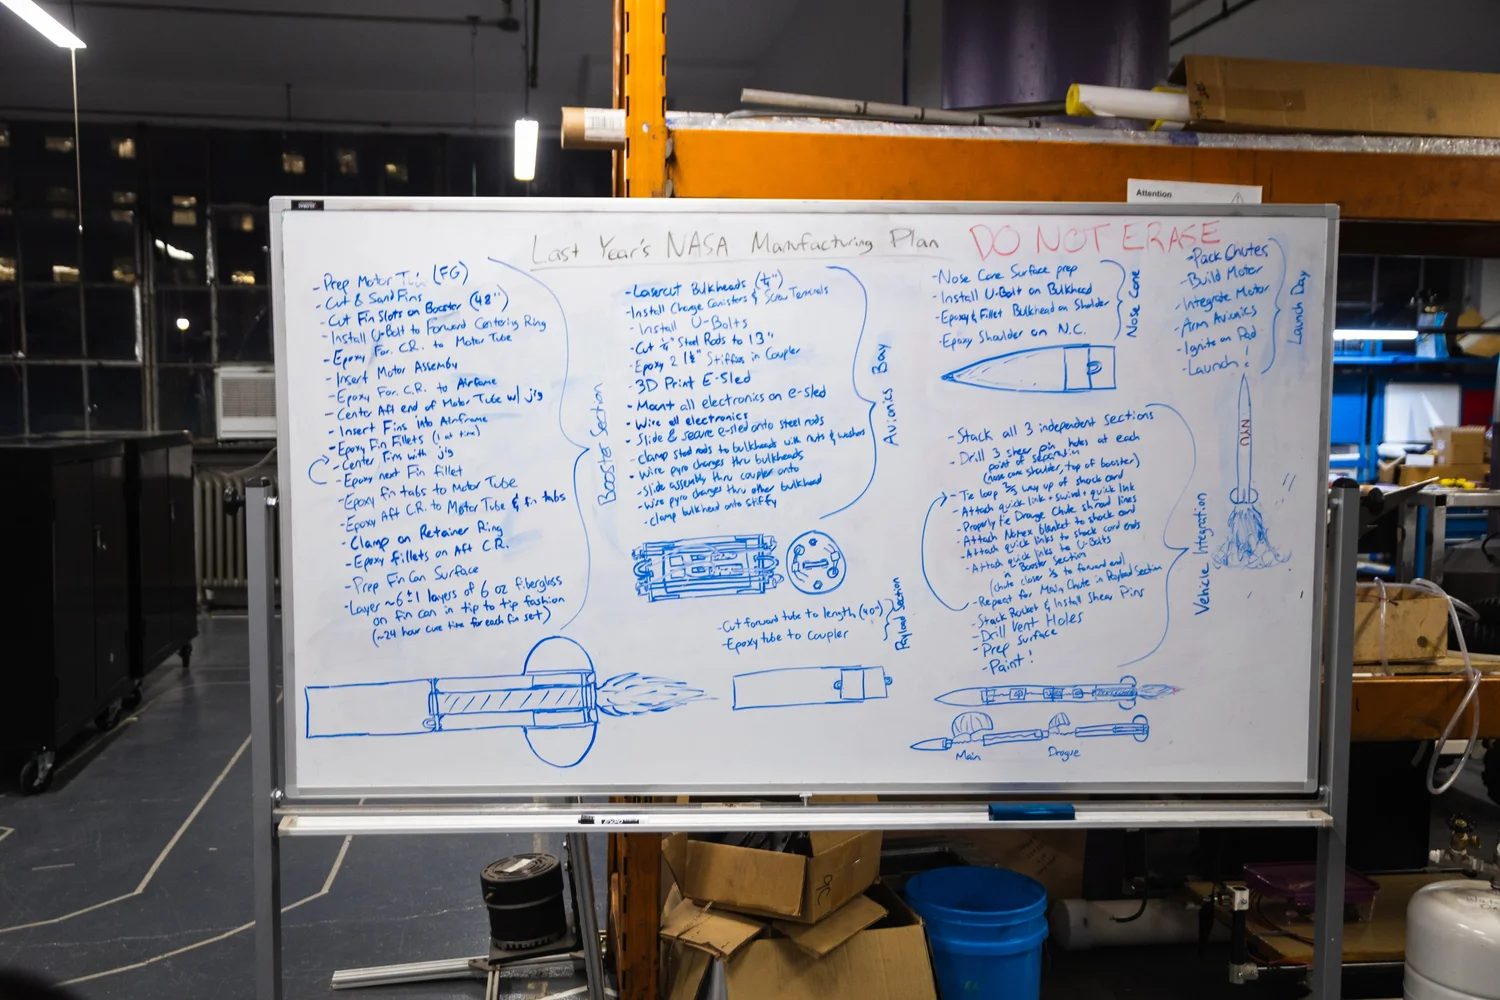 Attention
Last Year's NASA Manufacturing Plan
DO NOT ERASE
- Prep Motor Tube (FG)
- Cut & Sand Fins
- Cut Fin Slots on Booster (48")
- Install U-Bolt to Forward Centering Ring
- Epoxy For. C.R. to Motor Tube
- Insert Motor Assembly
- Epoxy For. C.R. to Airframe
- Center Aft end of Motor Tube w/ jig
- Insert Fins into Airframe
- Epoxy Fin Fillets (1 at time)
- Center Fins with jig
- Epoxy next Fin fillet
- Epoxy fin tabs to Motor Tube
- Epoxy Aft C.R. to Motor Tube & fin tabs
- Clamp on Retainer Ring
- Epoxy fillets on Aft C.R.
- Prep Fin Can Surface
- Layer ~6±1 layers of 6 oz fiberglass
on fin can in tip to tip fashion
(~24 hour cure time for each fin set)
Booster Section
- Lasercut Bulkheads (¼")
- Install Charge Canisters & Screw Terminals
- Install U-Bolts
- Cut ¼" Steel Rods to 13"
- Epoxy 2 1½" Stiffies in Coupler
- 3D Print E-Sled
- Mount all electronics on e-sled
- Wire all electronics
- Slide & secure e-sled onto steel rods
- Clamp steel rods to bulkheads with nuts & washers
- Wire pyro charges thru bulkheads
- Slide assembly thru coupler onto
- Wire pyro charges thru other bulkhead
- Clamp bulkhead onto stiffy
Avionics Bay
- Cut forward tube to length (40")
- Epoxy tube to Coupler
Payload Section
- Nose Cone Surface prep
- Install U-Bolt on Bulkhead
- Epoxy & Fillet Bulkhead on Shoulder
- Epoxy Shoulder on N.C.
Nose Cone
- Stack all 3 independent sections
- Drill 3 shear pin holes at each
point of separation
(nose cone shoulder, top of booster)
- Tie loop ⅔ way up of shock cord
- Attach quick link, swivel, quick link
- Properly tie Drogue Chute shroud lines
- Attach Nomex blanket to shock cord
- Attach quick links to shock cord ends
- Attach quick links to U-Bolts
in Booster Section
(chute closer ⅓ to forward end)
- Repeat for Main Chute in Payload Section
- Stack Rocket & Install Shear Pins
- Drill Vent Holes
- Prep surface
- Paint!
Vehicle Integration
Main
Drogue
- Pack Chutes
- Build Motor
- Integrate Motor
- Arm Avionics
- Ignite on Pad
- Launch!
Launch Day
NYU